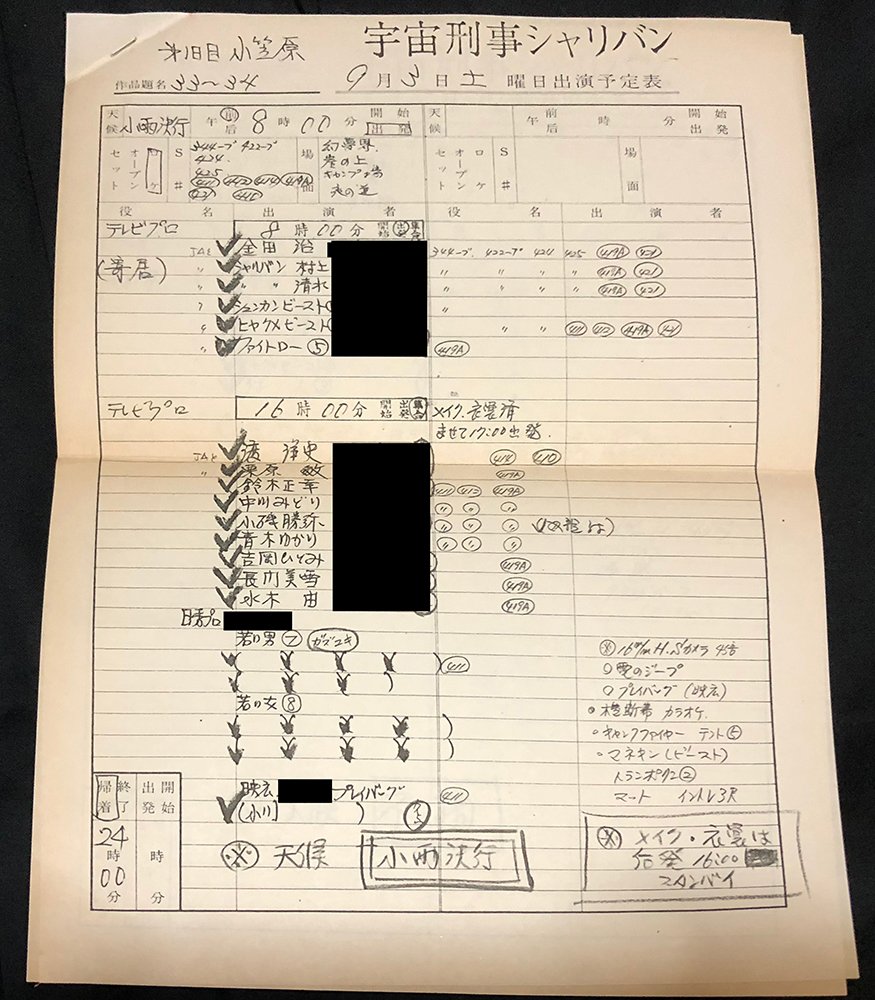 宇宙刑事シャリバン
小笠原
作品題名 33~34
9月3日土曜日出演予定表
天候 小雨決行 午前后 8時00分 開始 出発
天候 午前后 時 分 開始 出発
セット オープン ロケ S# 344-プ 422-プ 場面 幻夢界
424 崖の上
425 キャンプ場
411 412 414 419A 夜の道
421
セット オープン ロケ S# 場面
役名 出演者 役名 出演者
テレビプロ 8時00分 開始 出発 集合
JAC 金田治 344-プ 422-プ 424 425 419A 421
〃 シャリバン 村上 〃 〃 〃 〃 419A 421
〃 〃 清水 〃 〃 〃 〃 419A 421
シュンカンビースト 〃
ヒャクメビースト 〃 〃 411 412 419A 421
〃 ファイトロー ⑤ 419A
テレビプロ 16時00分 開始 出発 集合 メイク、衣裳済
ませて17:00出発
JAC 渡洋史 414 410
〃 栗原敏 419A
鈴木正幸 411 412 419A
中川みどり 〃 〃 〃
小磯勝弥 〃 〃 〃
青木ゆかり 〃 〃 〃
吉岡ひとみ 419A
長門美雪 419A
水木由 419A
若い男 ⑦
411
若い女 ⑧
映広 プレイバング 411
(小川)
※ 16m/m H.Sカメラ 45倍
○ 愛のジープ
○ プレイバング(映広)
○ 横断幕 カラオケ
○ キャンプファイヤー テント⑤
○ マネキン(ビースト)
トランポリン②
マート イントレ3尺
帰着 終了 24時00分
出発 開始 時 分
※ 天候 小雨決行
※ メイク・衣裳は
16:00
スタンバイ